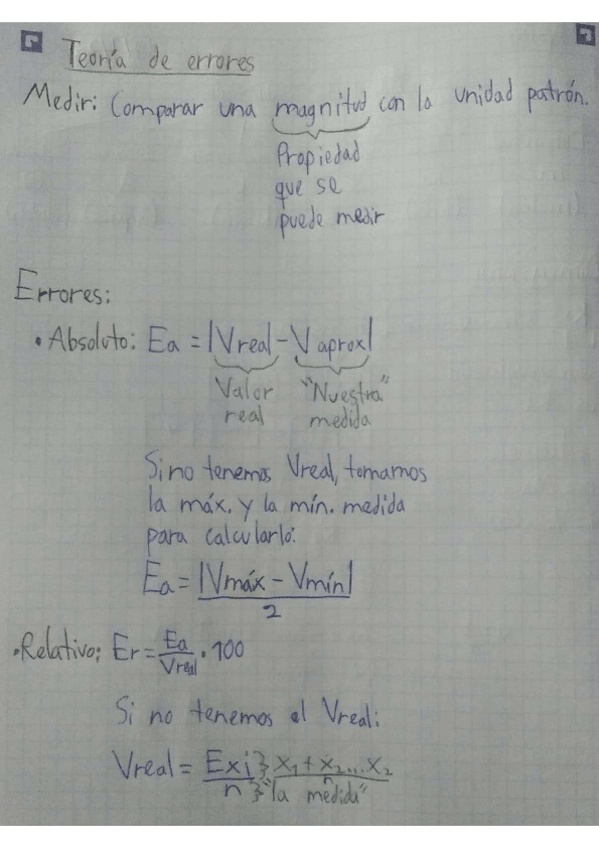 Teoría de errores
Medir: Comparar una magnitud con la unidad patrón.
Propiedad
que se
puede medir
Errores:
• Absoluto: Ea = |Vreal - Vaprox|
Valor real
"Nuestra" medida
Si no tenemos Vreal, tomamos
la máx. y la mín. medida
para calcularlo:
Ea = |Vmáx - Vmín|
2
• Relativo: Er = Ea/Vreal · 100
Si no tenemos el Vreal:
Vreal = Exi } x₁ + x₂... x₂
n } "la medida"